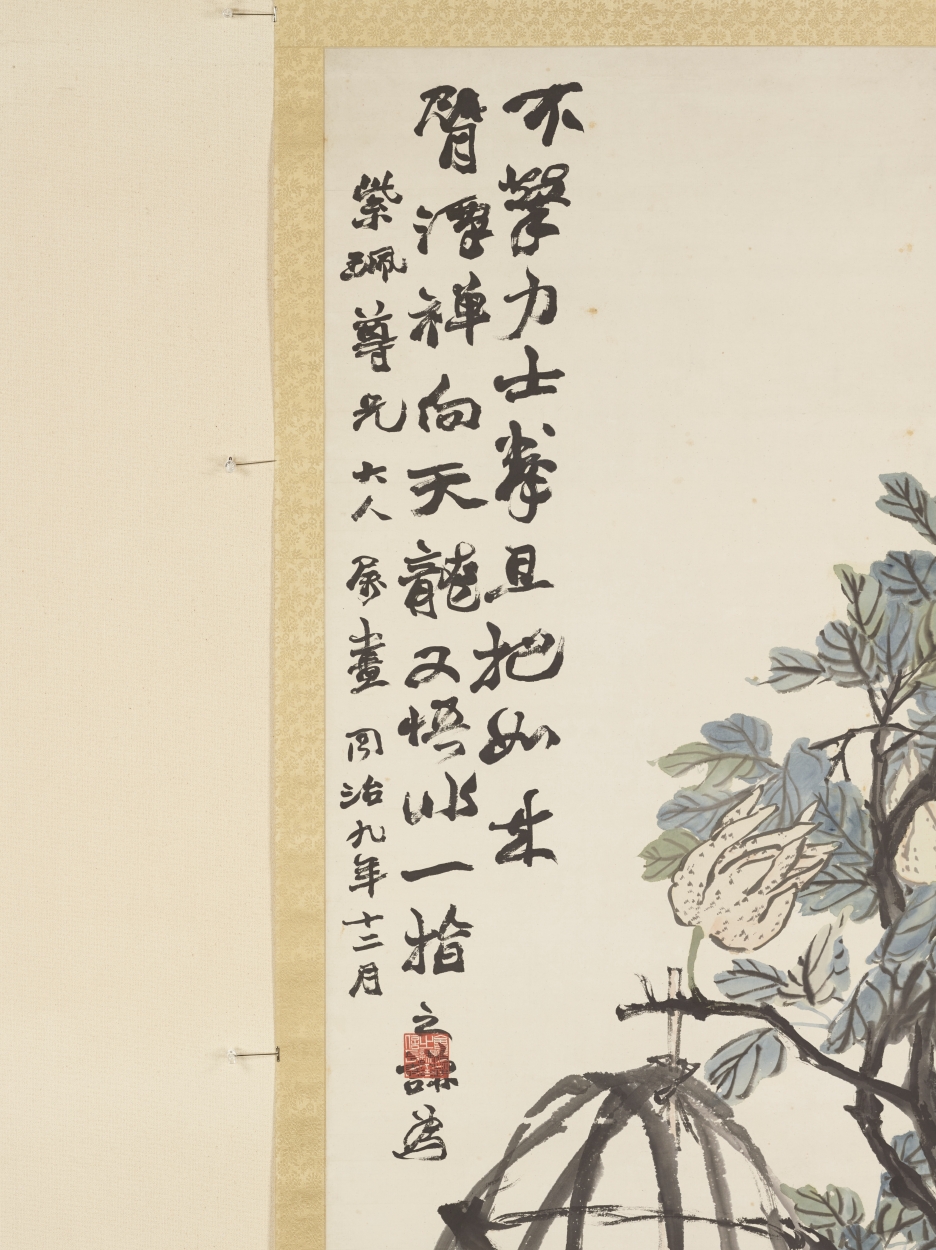 不擎力士拳且把如来
臂譚禅向天龍又悟此一指 之謙為
紫珮尊兄大人属畫 同治九年十二月